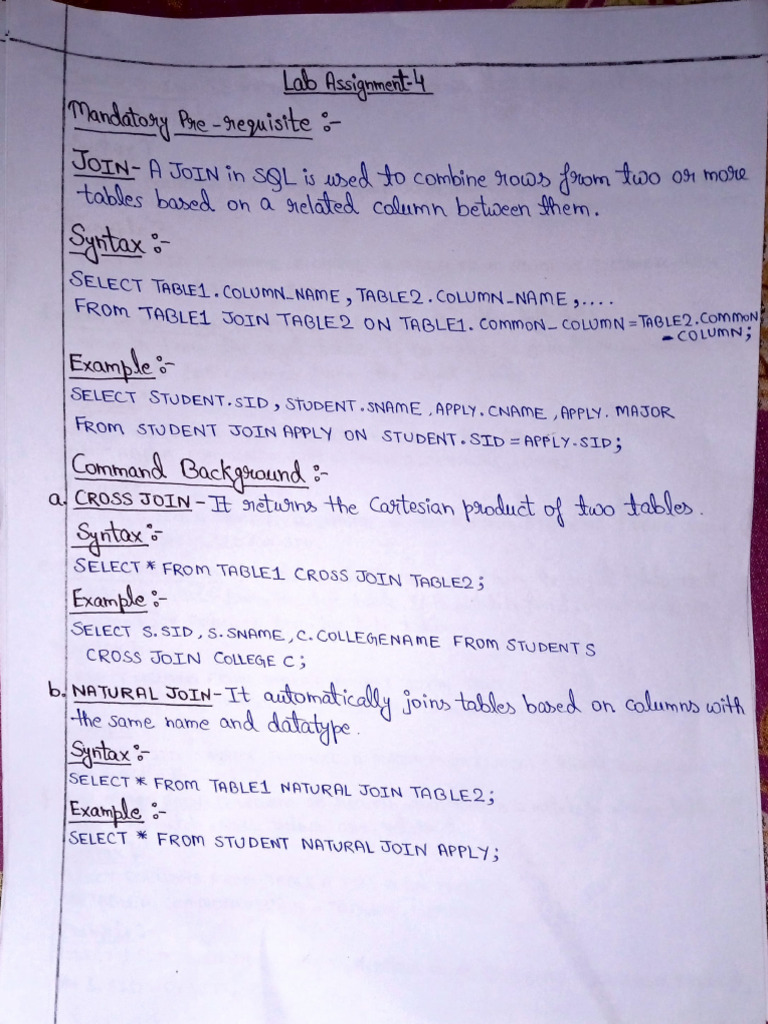 Lab Assignment-4
Mandatory Pre-requisite :-
JOIN - A JOIN in SQL is used to combine rows from two or more
tables based on a related column between them.
Syntax :-
SELECT TABLE1.COLUMN_NAME, TABLE2.COLUMN_NAME,....
FROM TABLE1 JOIN TABLE2 ON TABLE1.COMMON_COLUMN=TABLE2.COMMON
_COLUMN;
Example :-
SELECT STUDENT.SID, STUDENT.SNAME, APPLY.CNAME, APPLY.MAJOR
FROM STUDENT JOIN APPLY ON STUDENT.SID=APPLY.SID;
Command Background :-
a. CROSS JOIN - It returns the Cartesian product of two tables.
Syntax :-
SELECT * FROM TABLE1 CROSS JOIN TABLE2;
Example :-
SELECT S.SID, S.SNAME, C.COLLEGENAME FROM STUDENT S
CROSS JOIN COLLEGE C;
b. NATURAL JOIN - It automatically joins tables based on columns with
the same name and datatype.
Syntax :-
SELECT * FROM TABLE1 NATURAL JOIN TABLE2;
Example :-
SELECT * FROM STUDENT NATURAL JOIN APPLY;